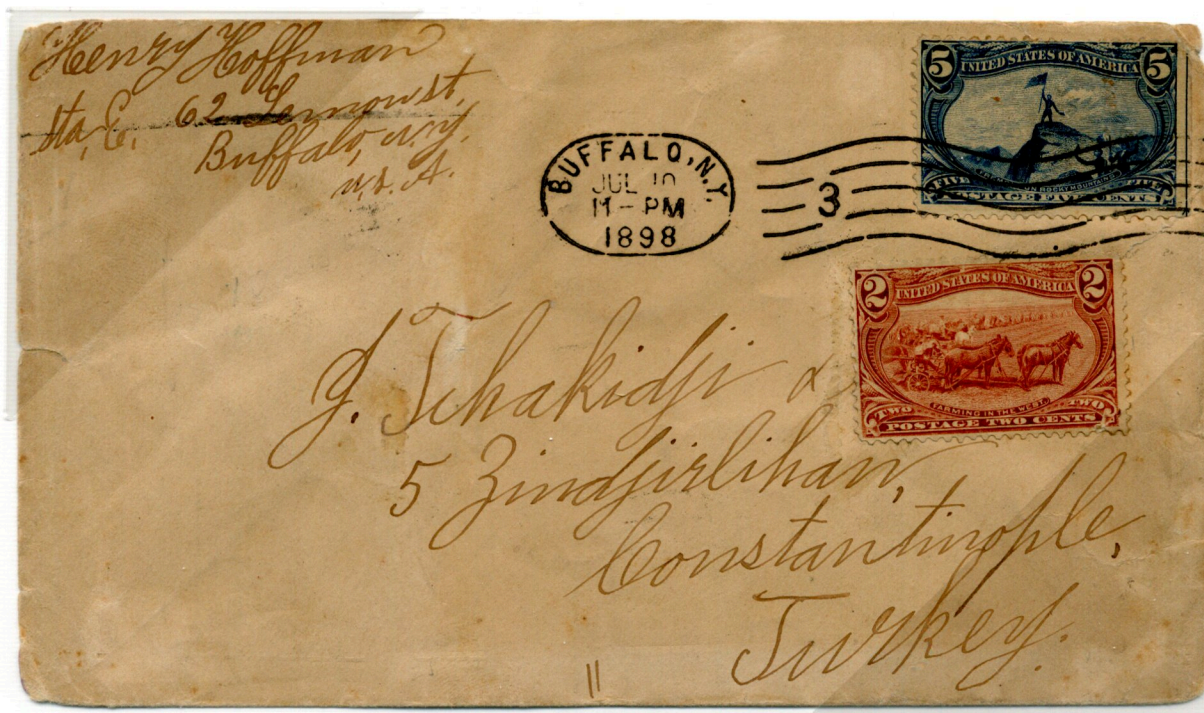 Henry Hoffman
Sta. E. 62 Lemon st.
Buffalo, N.Y.
U.S.A.
BUFFALO, N.Y.
JUL 10
11 - PM
1898
3
5 UNITED STATES OF AMERICA 5
ROCKY MOUNTAINS
FIVE FIVE
POSTAGE FIVE CENTS
2 UNITED STATES OF AMERICA 2
FARMING IN THE WEST.
TWO TWO
POSTAGE TWO CENTS
J. Tchakidji &
5 Zindjirlihan,
Constantinople,
Turkey.